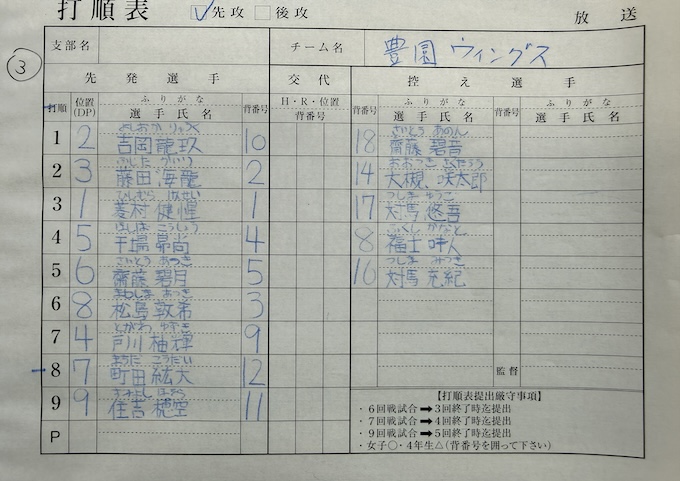 打順表 ✓先攻 □後攻 放送
③
支部名 チーム名 豊園 ウィングス
先発選手 交代 控え選手
打順 位置(DP) ふりがな 選手氏名 背番号 H・R・位置 背番号 背番号 ふりがな 選手氏名 背番号 ふりがな 選手氏名
よしおか りょうく さいとう あのん
1 2 吉岡 龍玖 10 18 齋藤 碧音
ふじた かいり おおつき えいたろう
2 3 藤田 海龍 2 14 大槻 瑛太郎
ひしむら けんせい つしま ゆうご
3 1 菱村 健惺 1 17 対馬 悠吾
ほしば こうしょう ふくし かなと
4 5 干場 昴尚 4 8 福士 叶人
さいとう あつき つしま みつき
5 6 齋藤 碧月 5 16 対馬 充紀
まつしま あつき
6 8 松島 敦希 3
とがわ ゆずき
7 4 戸川 柚輝 9
まちだ こうだい
8 7 町田 紘大 12 監督
すみよし ほだか
9 9 住吉 穂空 11
P
【打順表提出厳守事項】
・6回戦試合➡3回終了時迄提出
・7回戦試合➡4回終了時迄提出
・9回戦試合➡5回終了時迄提出
・女子○・4年生△(背番号を囲って下さい)